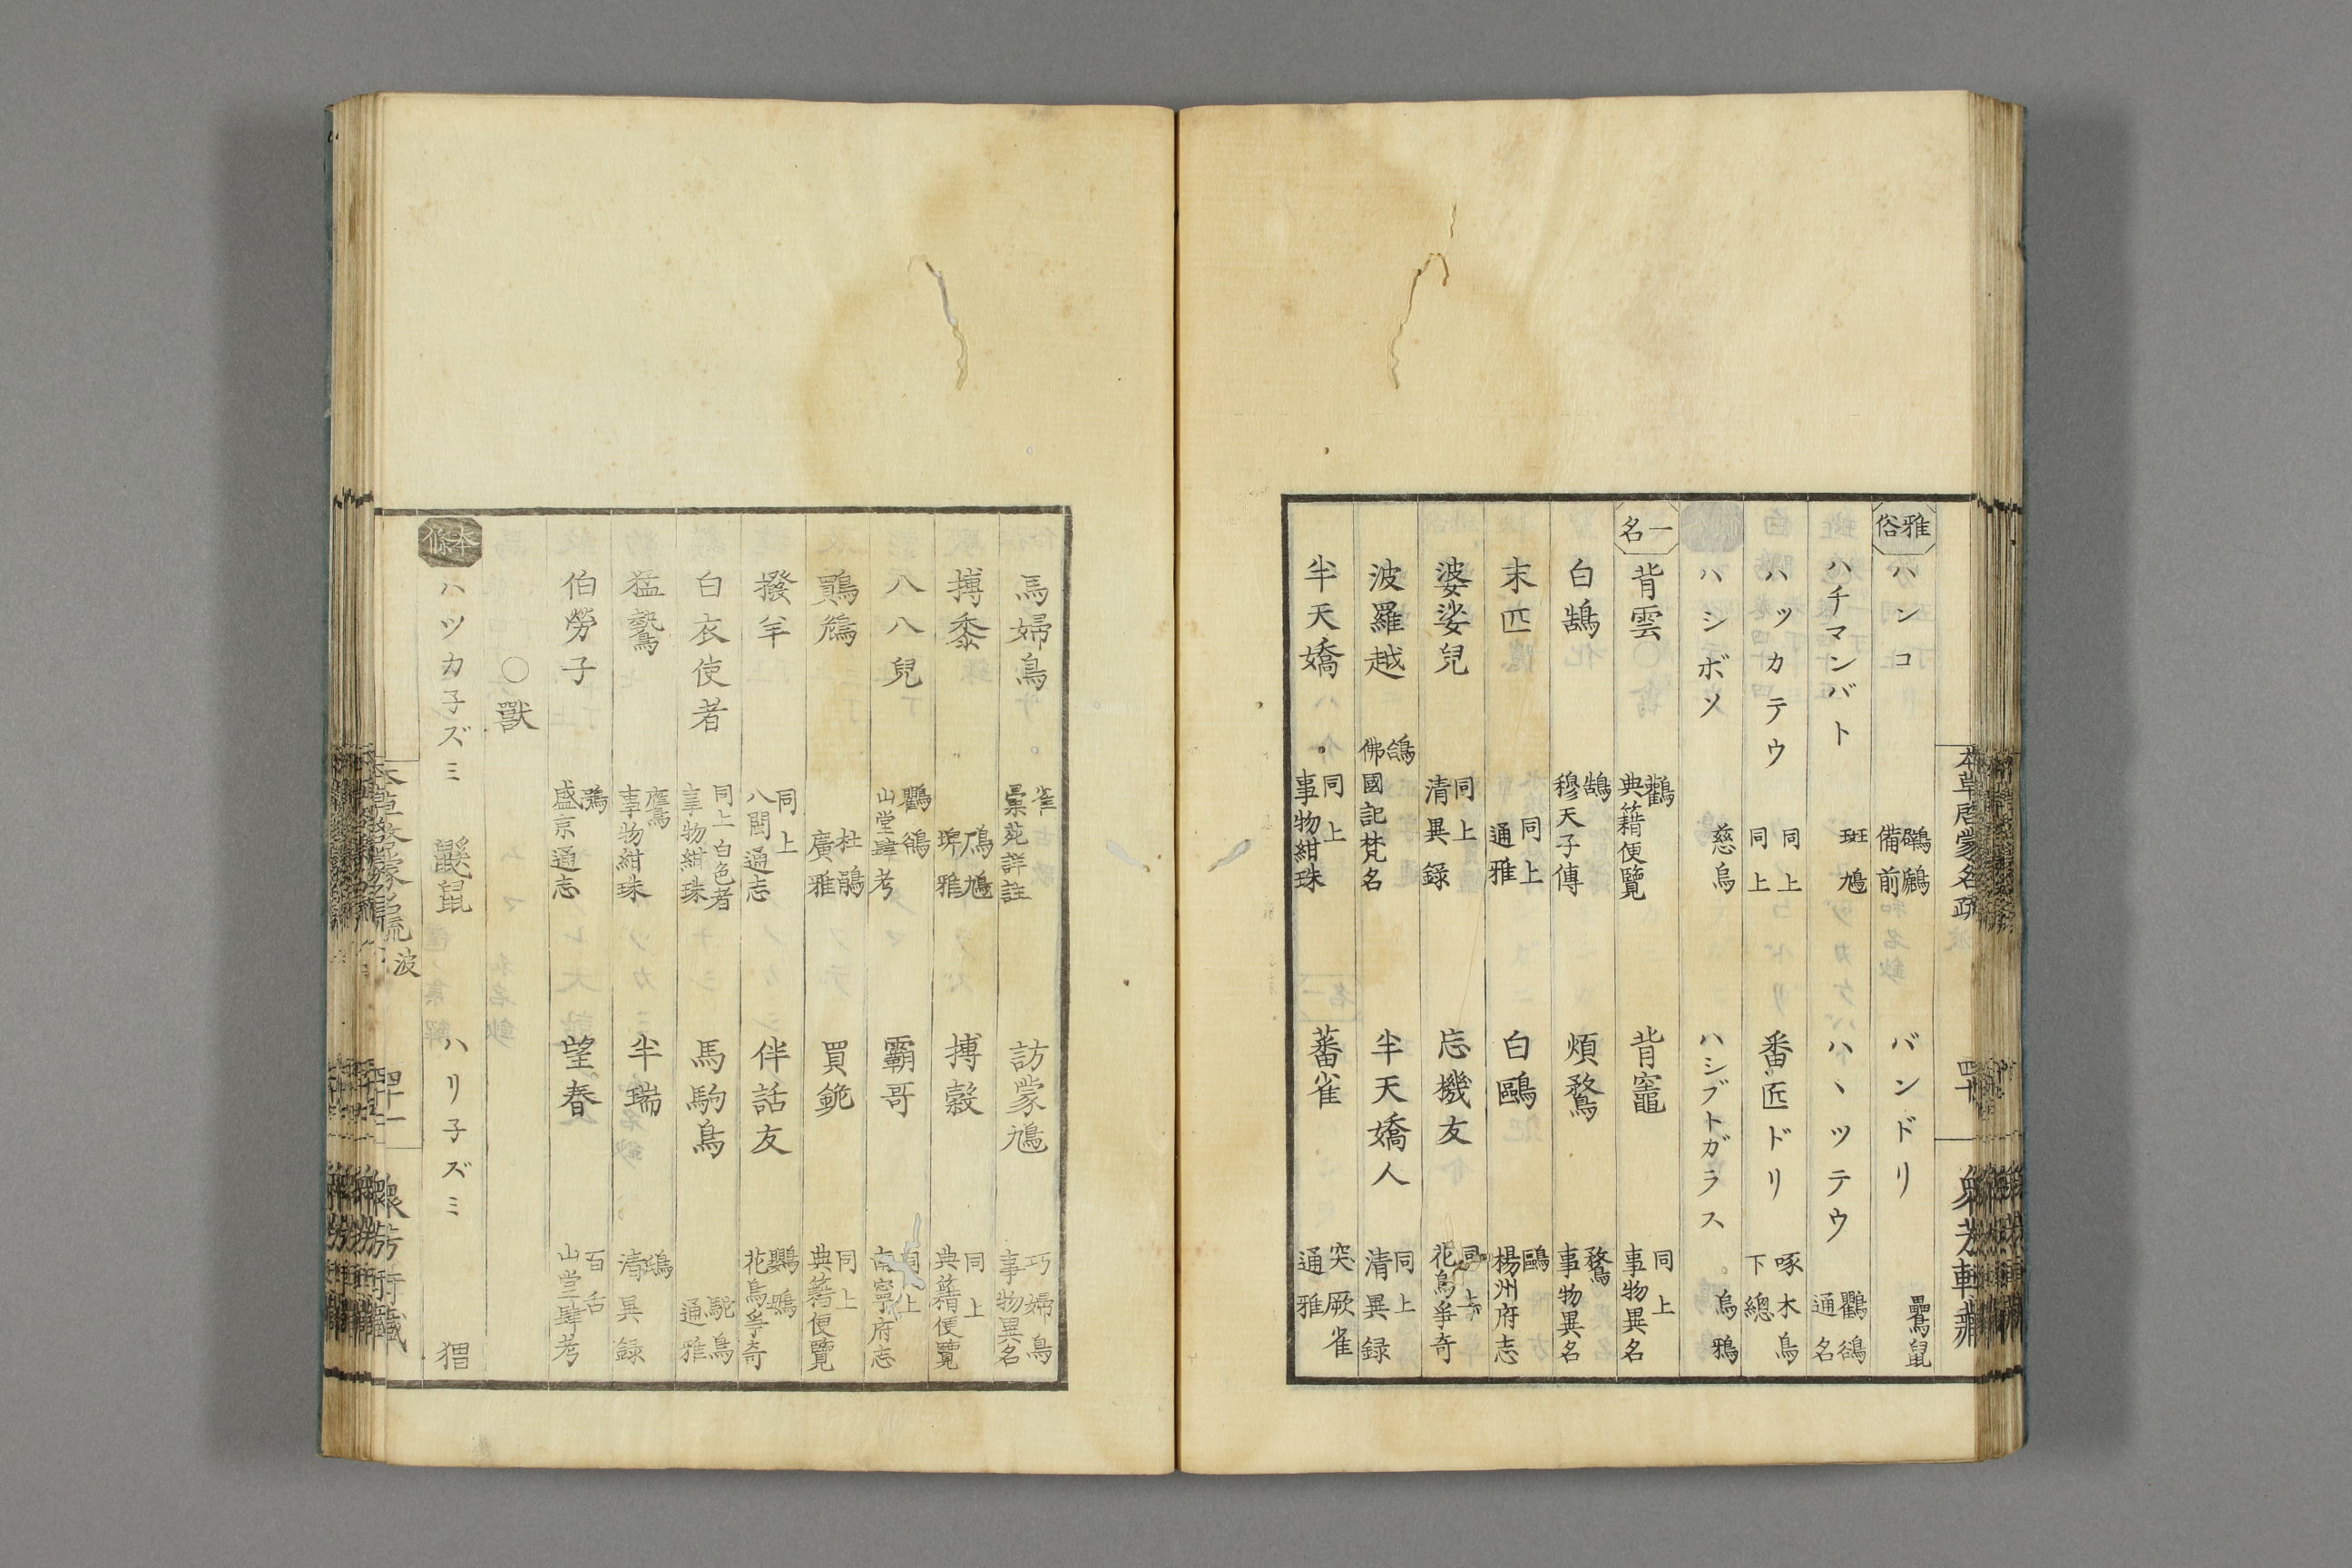 本草啓蒙名疏 波 四十 衆芳軒藏
雅俗 ハンコ 鸊鷉 備前 バンドリ 鸓鼠
ハチマンバト 斑鳩 ハヽツテウ 鸜鵒 通名
ハツカテウ 同上 同上 番匠ドリ 啄木鳥 下總
ハシボソ 慈烏 ハシブトガラス 烏鴉
一名 背雲 鸛 典籍便覽 背竈 同上 事物異名
白鵠 鵠 穆天子傳 煩鶩 鶩 事物異名
末匹 同上 通雅 白鷗 鷗 楊州府志
婆娑兒 同上 清異録 忘機友 同上 花鳥爭奇
波羅越 鴿 佛國記梵名 半天嬌人 同上 清異録
半天嬌 同上 事物紺珠 蕃雀 突厥雀 通雅
馬婦鳥 雀 彙苑詳註 訪蒙鳩 巧婦鳥 事物異名
搏黍 鳲鳩 埤雅 搏穀 同上 典籍便覽
八八兒 鸜鵒 山堂肆考 霸哥 同上 南寧府志
鷶 杜鵑 廣雅 買 同上 典籍便覽
撥羊 同上 八閩通志 伴話友 鸚䳇 花鳥爭奇
白衣使者 同上白色者 事物紺珠 馬駒鳥 駝鳥 通雅
猛鷙 鷹 事物紺珠 半瑞 鴆 清異録
伯勞子 鵙 盛京通志 望春 百舌 山堂肆考
○獸
本條 ハツカ子ズミ 鼷鼠 ハリ子ズミ 猬
本草啓蒙名疏 波 四十一 衆芳軒藏